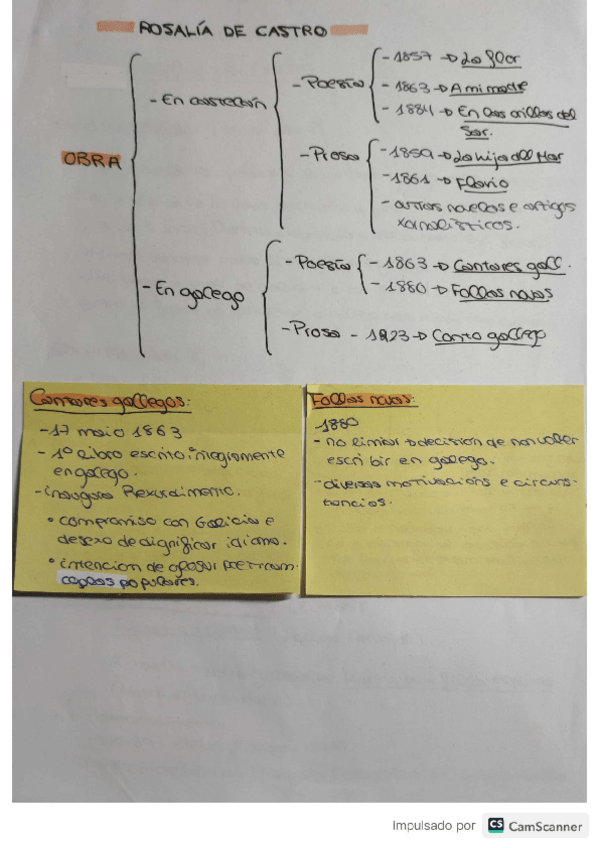 ROSALÍA DE CASTRO
OBRA
- En castelán
- Poesía
- 1857 → La flor
- 1863 → A mi madre
- 1884 → En las orillas del
Sar.
- Prosa
- 1859 → La hija del Mar
- 1861 → Flavio
- outras novelas e artigos
xornalísticos.
- En galego
- Poesía
- 1863 → Cantares gall.
- 1880 → Follas novas
- Prosa - 1923 → Conto gallego
Cantares gallegos:
- 17 maio 1863
- 1º libro escrito integramente
en galego.
- inaugura Rexurdimento.
• compromiso con Galicia e
desexo de dignificar idioma.
• intencion de
coplas populares.
Follas novas:
- 1880
- no limiar → decision de non volver
escribir en galego.
- diversas motivacions e circuns-
tancias.
Impulsado por CS CamScanner